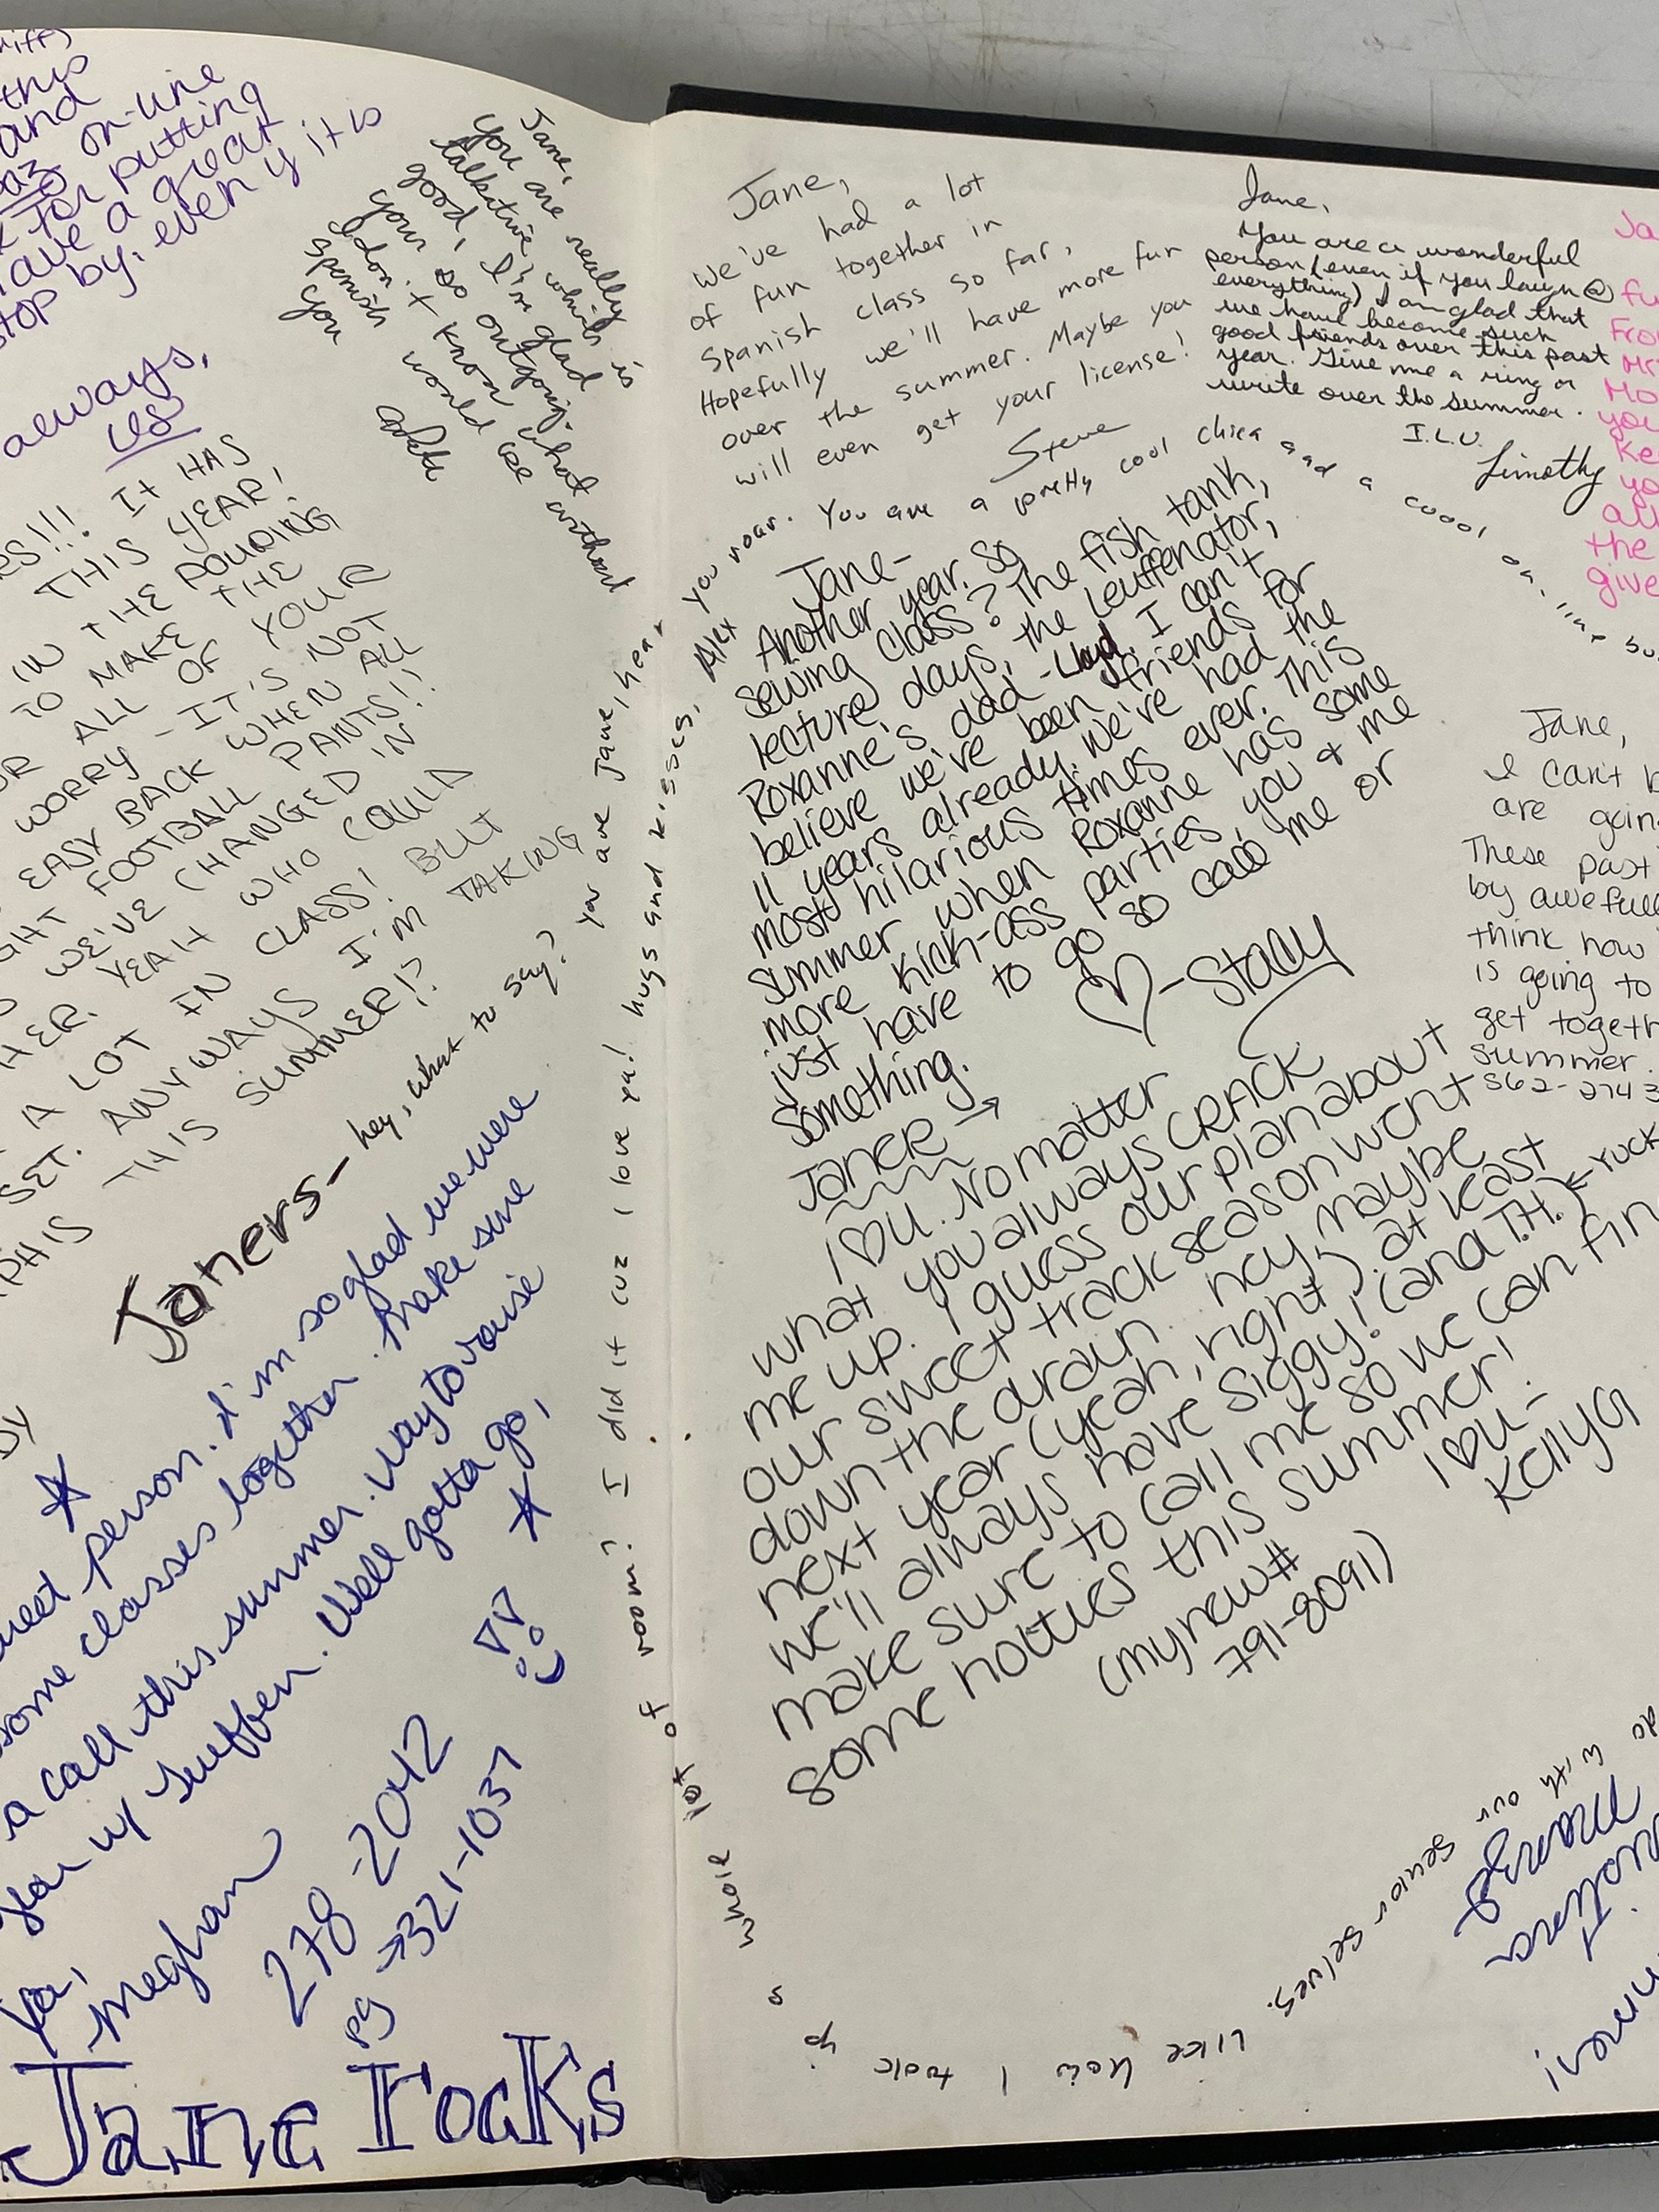 this
and
on-line
for putting
have a great
stop by: even if it is
always,
Jane,
You are really
talkative, which is
good, I'm glad
your so outgoing, what
I don't know
Spanish would be without
you
IT HAS
THIS YEAR!
IN THE POURING
TO MAKE THE
OR ALL OF YOUR
WORRY - IT'S NOT
EASY BACK WHEN ALL
FOOTBALL PANTS!!
WE'VE CHANGED IN
HER. YEAH WHO COULD
A LOT IN CLASS! BUT
SET. ANYWAYS I'M TAKING
THIS SUMMER!?
Janers- hey, what to say? you are Jane, hear you roar. You are a pretty cool chica and a
person. I'm so glad we were
some classes together. Make sure
a call this summer. Way to raise
w/ Steffen. Well gotta go,
Meghan
278-2042
pg → 321-1037
Jane rocks
Jane,
We've had a lot
of fun together in
Spanish class so far,
Hopefully we'll have more fun
over the summer. Maybe you
will even get your license!
Steve
Jane,
You are a wonderful
person (even if you laugh @
everything) I am glad that
we have become such
good friends over this past
year. Give me a ring or
write over the summer.
I.L.U.
Timothy
Jane-
Another year, so
sewing class? The fish tank,
lecture days, the Leuffenator,
Roxanne's dad - Lloyd. I can't
believe we've been friends for
11 years already. We've had the
most hilarious times ever. This
summer when Roxanne has some
more kick-ass parties, you & me
just have to go so call me or
something.
♡-Stacy
JANER →
I ♡ U. No matter
what you always CRACK
me up. I guess our plan about
our sweet track season went
down the drain. hey, maybe
next year (yeah, right). at least
we'll always have Siggy! (and T.H.)
make sure to call me so we can find
some hotties this summer!
I ♡ U -
Kelly G
(my new #
791-8091)
Jane,
I can't b
are goin
These past
by awefull
think how
is going to
get togeth
summer.
362-2743
with our senior selves.
like how I took up a whole lot of room? I did it cuz I love ya! hugs and kisses, Alex
Ja
fu
Fro
Mr
Mo
you
Ke
yo
all
the
give